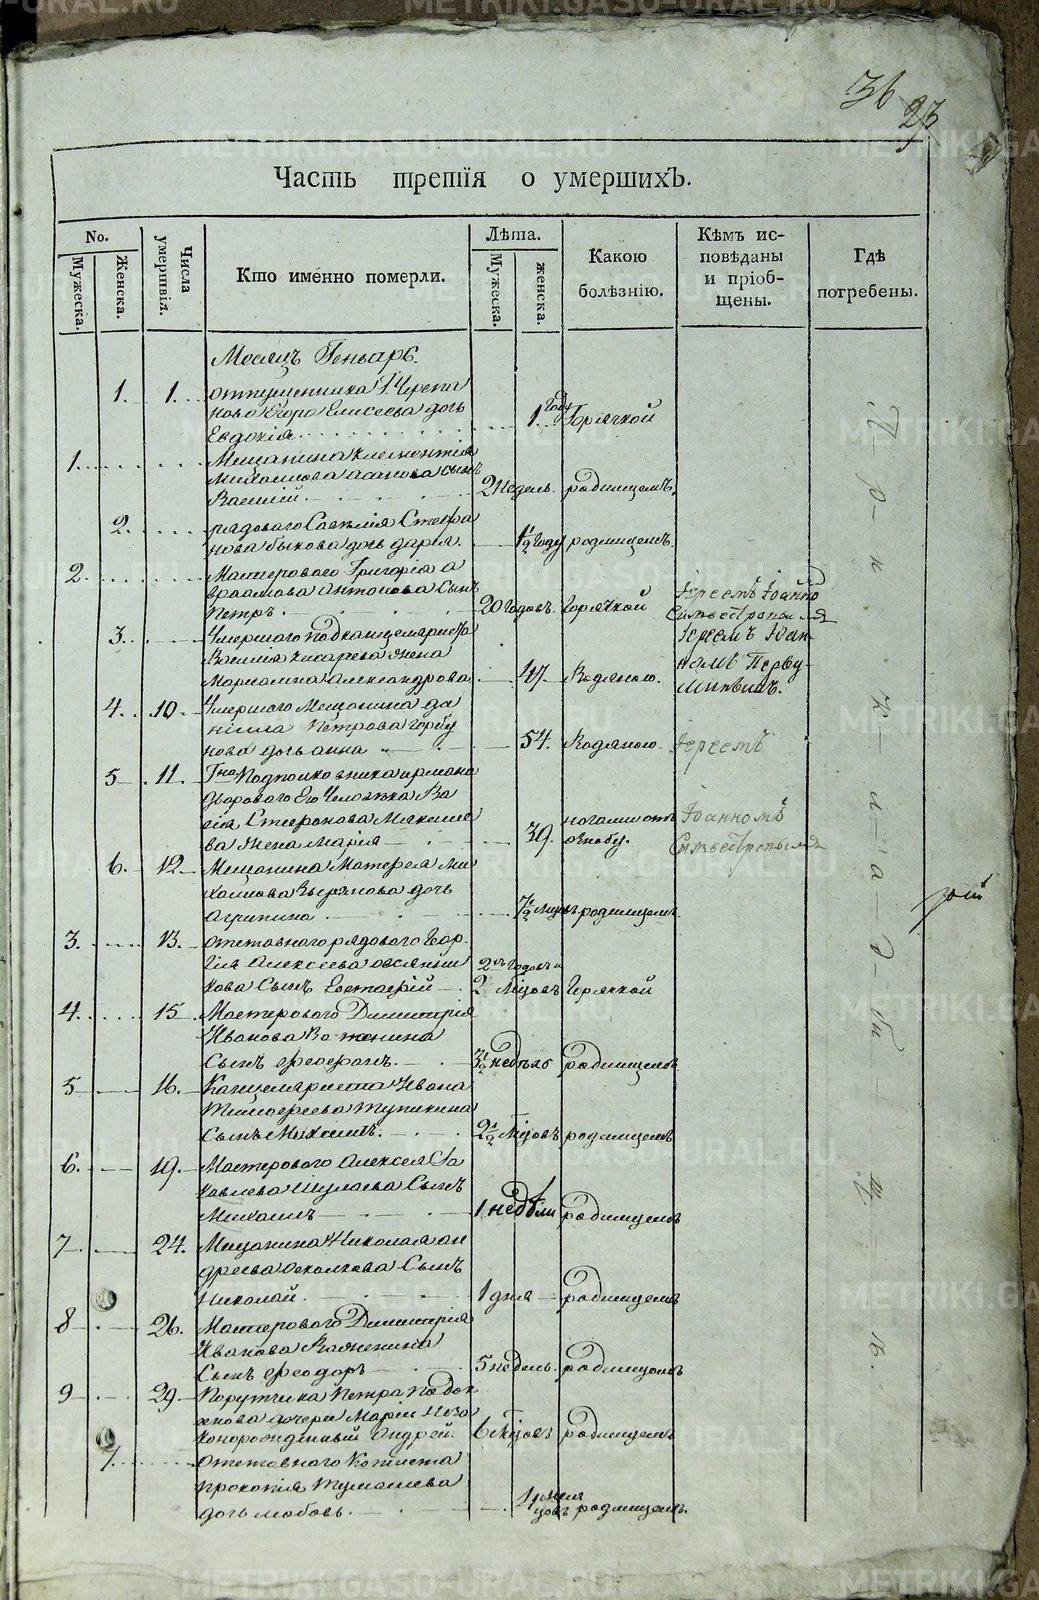 36
23
Часть третія о умершихъ.
No.
Мужеска.
Женска.
Числа умертвія.
Кто именно померли.
Лѣта.
Мужеска.
женска.
Какою болѣзнію.
Кѣмъ исповѣданы и пріобщены.
Гдѣ погребены.
Месяцъ Геньварь.
1. 1. отпущенника Черепа
ново Егора Елисеева дочь
Евдокія 1 Году Горячкой
1. Мещанина Клементія
Михаилова Асанова сынъ
Василій 2 недель. родимцемъ.
2. рядового Савелія Стефа
нова Быкова дочь дарья. 1 1/2 Году родимцемъ.
2. Мастероваго Григорія а
враамова Антонова Сынъ
Петръ. 20 Годовъ. Горячкой Іереемъ Іоанно
3. Умершаго подканцеляриста
Василія Писарева жена
Маріамна Александрова 47 Водяною. Іереемъ Іоан
номъ Перву
шинымъ.
4. 10. Умершаго Мещанина да
ніила Петрова Горбу
нова дочь анна 54. Водяною. Іереемъ
5 11. Гна Подполковника
дворового Его Человѣка Ва
силія Миронова Макаше
ва жена Марія 39. ногами отъ
ознобу. Іоанномъ
6. 12. Мещанина Матфея Ми
хаилова Зырянова дочь
Агрипина 7 1/2 Мцовъ родимцомъ.
3. 13. отставнаго рядоваго Геор
гія Алексеева овсянни
кова Сынъ Евстафій 2хъ Годовъ и
2 Мцовъ Горячкой
4. 15 Мастероваго Димитрія
Иванова Важенина
Сынъ Феофанъ. 3 1/2 недели родимцемъ
5 16. Канцеляриста Ивана
Тимофеева Тупикина
Сынъ Михаилъ. 2 1/2 Мцовъ родимцемъ
6. 19. Мастероваго Алексея Яа
ковлева Шулаева Сынъ
Михаилъ 1 недѣли родимцемъ
7 24. Мещанина Николая ан
дреева Соколкова Сынъ
Николай. 1 дня родимцемъ
8 26. Мастероваго Димитрія
Иванова Важенина
Сынъ Феодоръ 5 недель. родимцомъ
9 29. Порутчика Петра
дочери Маріи неза
конорожденный Андрей. 6 Мцовъ родимцемъ
7. отставнаго Копеиста
Прокопія Тумашева
дочь любовь. 4 меся
цовъ родимцемъ.